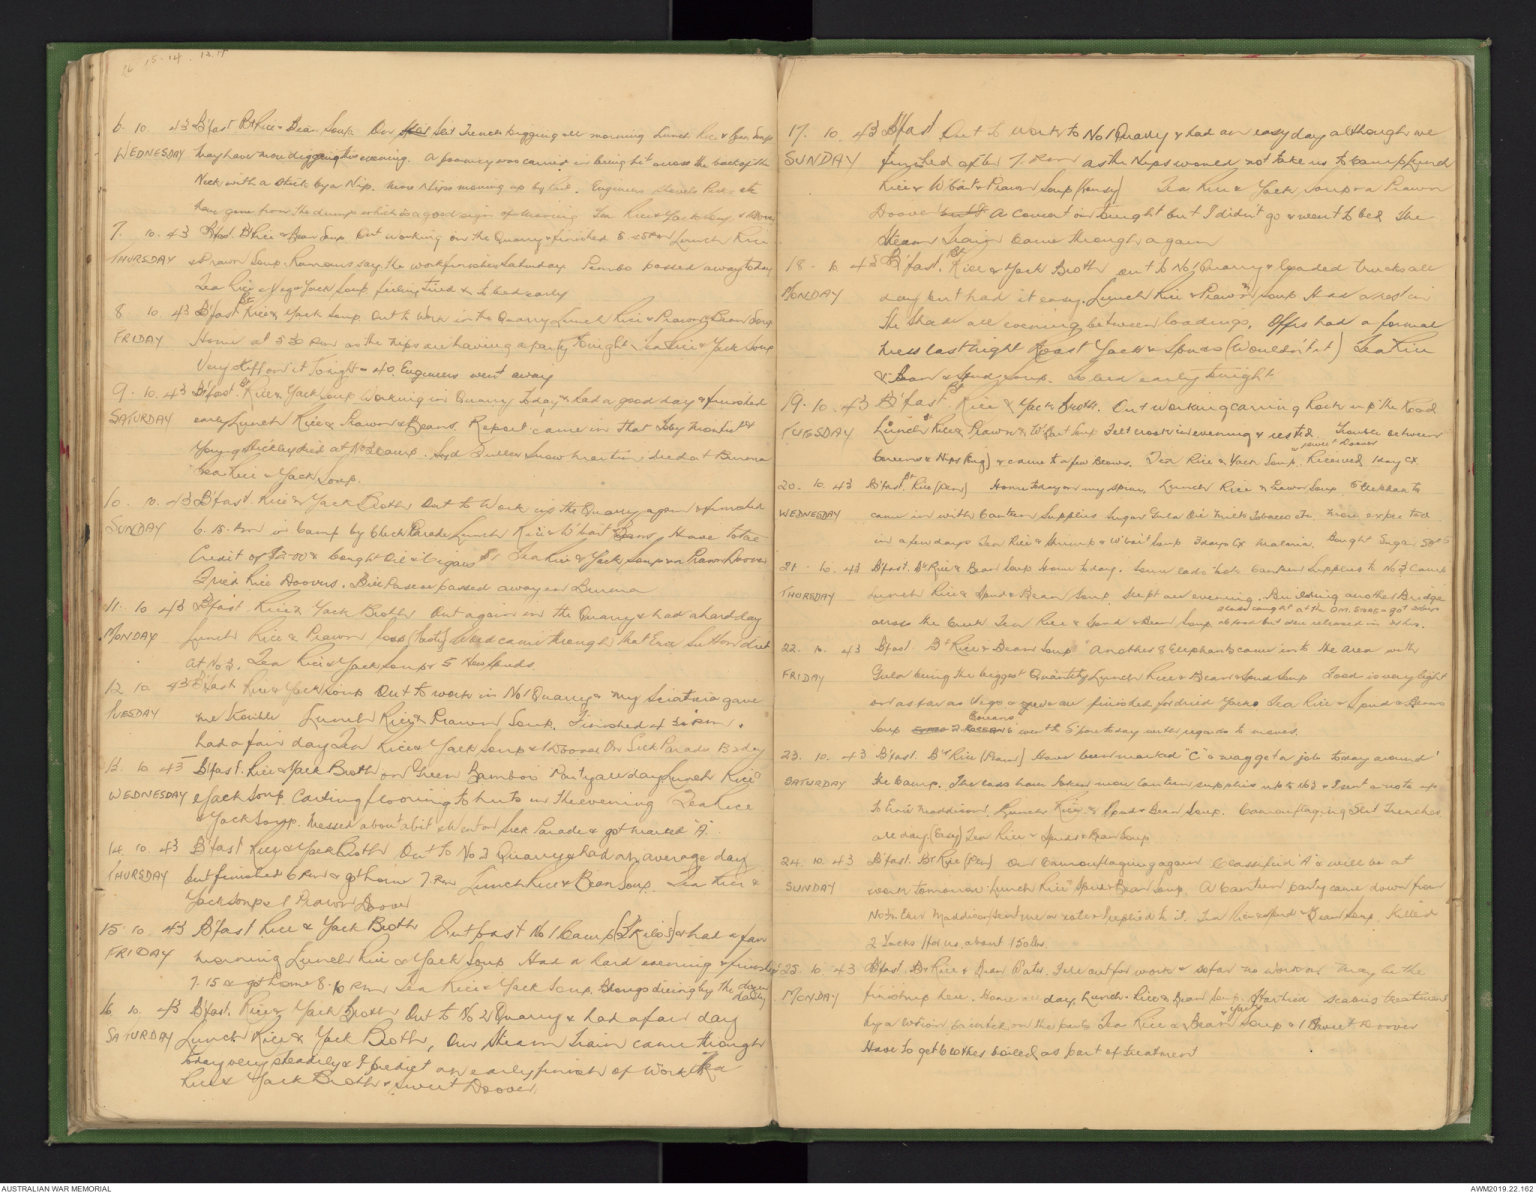 16 15 . 14 . 13.
6. 10. 43 B'fast Bt Rice & Bean Soup. Our Slit Trench digging all morning Lunch Rice & Bean Soup
WEDNESDAY they have more digging this evening. A journey was carried in being hit across the back of the
Neck with a stick by a Nip. More Nips moving up by rail. Engineers Picks etc
have gone from the dump which is a good sign of leaving Tea Rice & Yack Soup & Doover
7. 10. 43 B'fast Bt Rice & Bean Soup Out working on the Quarry & finished 5.45 PM Lunch Rice
THURSDAY & Prawn Soup. Rumours say the work finishes Saturday passed away today
Tea Rice & Veg & Yack Soup feeling tired & to bed early
8 10. 43 B'fast Bt Rice & Yack Soup Out to work in the Quarry Lunch Rice & Prawn & Bean Soup
FRIDAY Home at 5 30 PM as the Nips are having a party tonight. Tea Rice & Yack Soup
Very stiff on it tonight - 40 Engineers went away
9. 10. 43 B'fast. Bt Rice & Yack Soup Working in Quarry today & had a good day & finished
SATURDAY early Lunch Rice & Prawn & Beans. Report came in that
Young died at No 2 Camp. Syd died at Burma
Tea Rice & Yack Soup.
10. 10. 43 B'fast Rice & Yack Broth Out to Work up the Quarry again & finished
SUNDAY 6. 15. PM in Camp by 6 Sick Parade Lunch Rice & W'bait Beans Have total
Credit of $2.00 & bought Oil & Cigars $1 Tea Rice & Yack Soup & Prawn Doover
Fried Rice Doovers. passed away in Burma
11. 10 43 B'fast. Rice & Yack Broth Out again on the Quarry & had a hard day
MONDAY Lunch Rice & Prawn Soup (Tasty) Word came through that died
at No 3. Tea Rice & Yack Soup & 5 Spuds.
12 10. 43 B'fast Rice & Yack Soup Out to work in No 1 Quarry & my Sciatica gave
TUESDAY me trouble Lunch Rice & Prawn Soup. Finished 4 30 PM.
had a fair day Tea Rice & Yack Soup & 1 Doover On Sick Parade B today
13. 10 43 B'fast. Rice & Yack Broth on Green Bamboo Party all day Lunch Rice
WEDNESDAY & Yack Soup Carting flooring to huts in the evening Tea Rice
& Yack Soup. Messed about a bit & went on Sick Parade & got marked "A".
14. 10. 43 B'fast Rice & Yack Broth Out to No 2 Quarry & had an average day
THURSDAY but finished 6 PM & got home 7. PM Lunch Rice & Bean Soup. Tea Rice &
Yack Soup & 1 Prawn Doover
15. 10. 43 B'fast Rice & Yack Broth Out past No 1 Camp (2 Kilos) & had a fair
FRIDAY morning Lunch Rice & Yack Soup Had a hard evening & finished
7. 15 & got home 8. 10 PM Tea Rice & Yack Soup. Boongs dieing by the dozen
daily
16. 10. 43 B'fast. Rice & Yack Broth Out to No 2 Quarry & had a fair day
SATURDAY Lunch Rice & Yack Broth, Our Steam Train came through
today very steadily & I predict an early finish of Work Tea
Rice & Yack Broth & sweet Doover.
17. 10. 43 B'fast. Out to work to No 1 Quarry & had an easy day although we
SUNDAY finished after 7. PM as the Nips would not take us to Camp Lunch
Rice & W'bait & Prawn Soup (lousy) Tea Rice & Yack Soup & a Prawn
Doover A concert on tonight but I didn't go & went to bed The
Steam Train came through again
18. 10 43 B'fast. Bt Rice & Yack Broth out to No 1 Quarry & loaded trucks all
MONDAY day but had it easy. Lunch Rice & Prawn Soup Had a rest in
the shade all evening between loadings. Offrs had a formal
Mess last night Roast Yack & Spuds (Wouldn't it) Tea Rice
& Bean & Spud Soup. To bed early tonight.
19. 10. 43 B'fast Bt Rice & Yack Broth. Out working carrying Rock up the Road
TUESDAY Lunch Rice & Prawn & W'bait Soup Felt crook in evening & rested. Trouble between
Koreans & Nips & came to a few blows. Tea Rice & Yack Soup & sweet Doover. Received 1 day CX
20. 10. 43 B'fast Bt Rice (Plain) Home today on my spine. Lunch Rice & Prawn Soup 5 Elephants
WEDNESDAY came in with Canteen Supplies Sugar Gula Oil Milk Tobacco etc. more expected
in a few days Tea Rice & Shrimp & W'bait Soup 3 days CX Malaria. Bought Sugar
21. 10. 43 B'fast. Bt Rice & Bean Soup Home today. Some lads took Canteen Supplies to No 3 Camp
THURSDAY Lunch Rice & Spud & Bean Soup. Slept all evening. Building another Bridge
across the Creek Tea Rice & Spud & Bean Soup.
22. 10. 43 B'fast. Bt Rice & Bean Soup Another 8 Elephants came into the area with
FRIDAY Gula being the biggest Quantity Lunch Rice & Bean & Spud Soup Food is very light
on as far as Vegs & we are all finished for dried Yacks Tea Rice & Spud & Beans
Soup Koreans went 5 p'ore today with regards to moves.
23. 10. 43 B'fast. Bt Rice (Plain) Have been marked "C" & may get a job today around
SATURDAY the Camp. The lads have taken more Canteen supplies up to No 3 & I sent a note up
to Ernie Maddison. Lunch Rice & Spud & Bean Soup. Camouflaging Slit Trenches
all day (Easy) Tea Rice & Spud & Bean Soup
24. 10. 43 B'fast. Bt Rice (Pln) On Camouflaging again Classified "A" & will be at
SUNDAY work tomorrow Lunch Rice & Spud & Bean Soup. A Canteen party came down from
No 3. Maddison sent me a note & I replied to it. Tea Rice & Spud & Bean Soup. Killed
2 Yacks for us about 150 lbs.
25. 10. 43 B'fast. Bt Rice & Bean Water. Fell out for work & so far no work on may be the
MONDAY finish up here. Home all day. Lunch - Rice & Bean Soup. Started scabies treatment
on the parts Tea Rice & Bean & Yack Soup & 1 Sweet Doover
Have to get clothes boiled as part of treatment
AUSTRALIAN WAR MEMORIAL
AWM2019.22.162